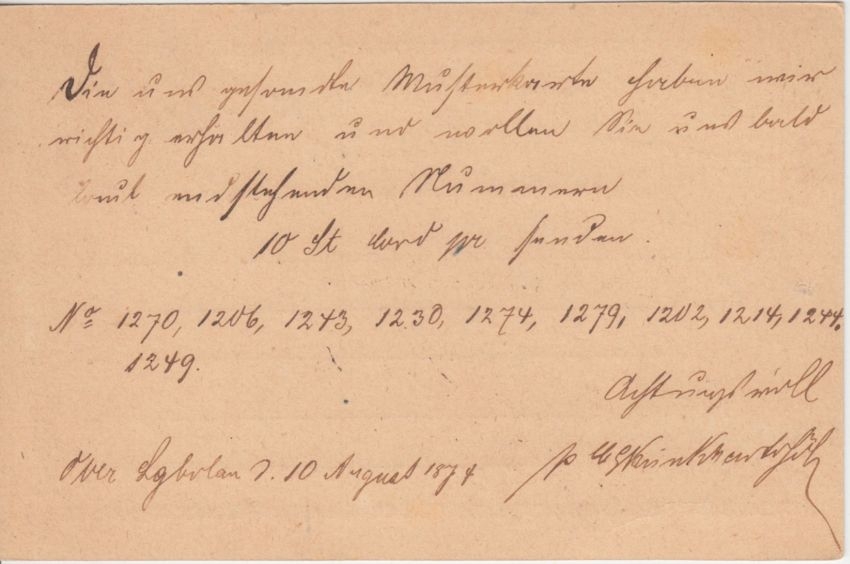 Die uns gesandte Musterkarte haben wir
richtig erhalten und wollen Sie uns bald
laut endstehenden Nummern
10 St Cord pr senden.
No 1270, 1206, 1243, 1230, 1274, 1279, 1202, 1214, 1244,
1249.
Achtungsvoll
Ober d. 10 August 1874
p